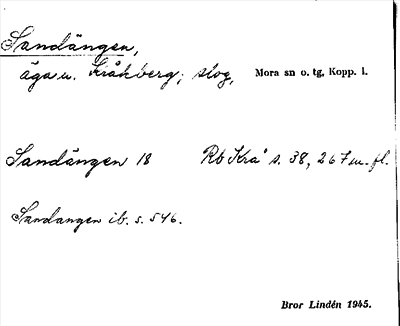 Sandängen,
ägan. Kråkberg; slog, Mora sn o. tg, Kopp. l.
Sandängen 18 Rb Krå s. 38, 267 m. fl.
Sandangen ib. s. 546.
Bror Lindén 1945.